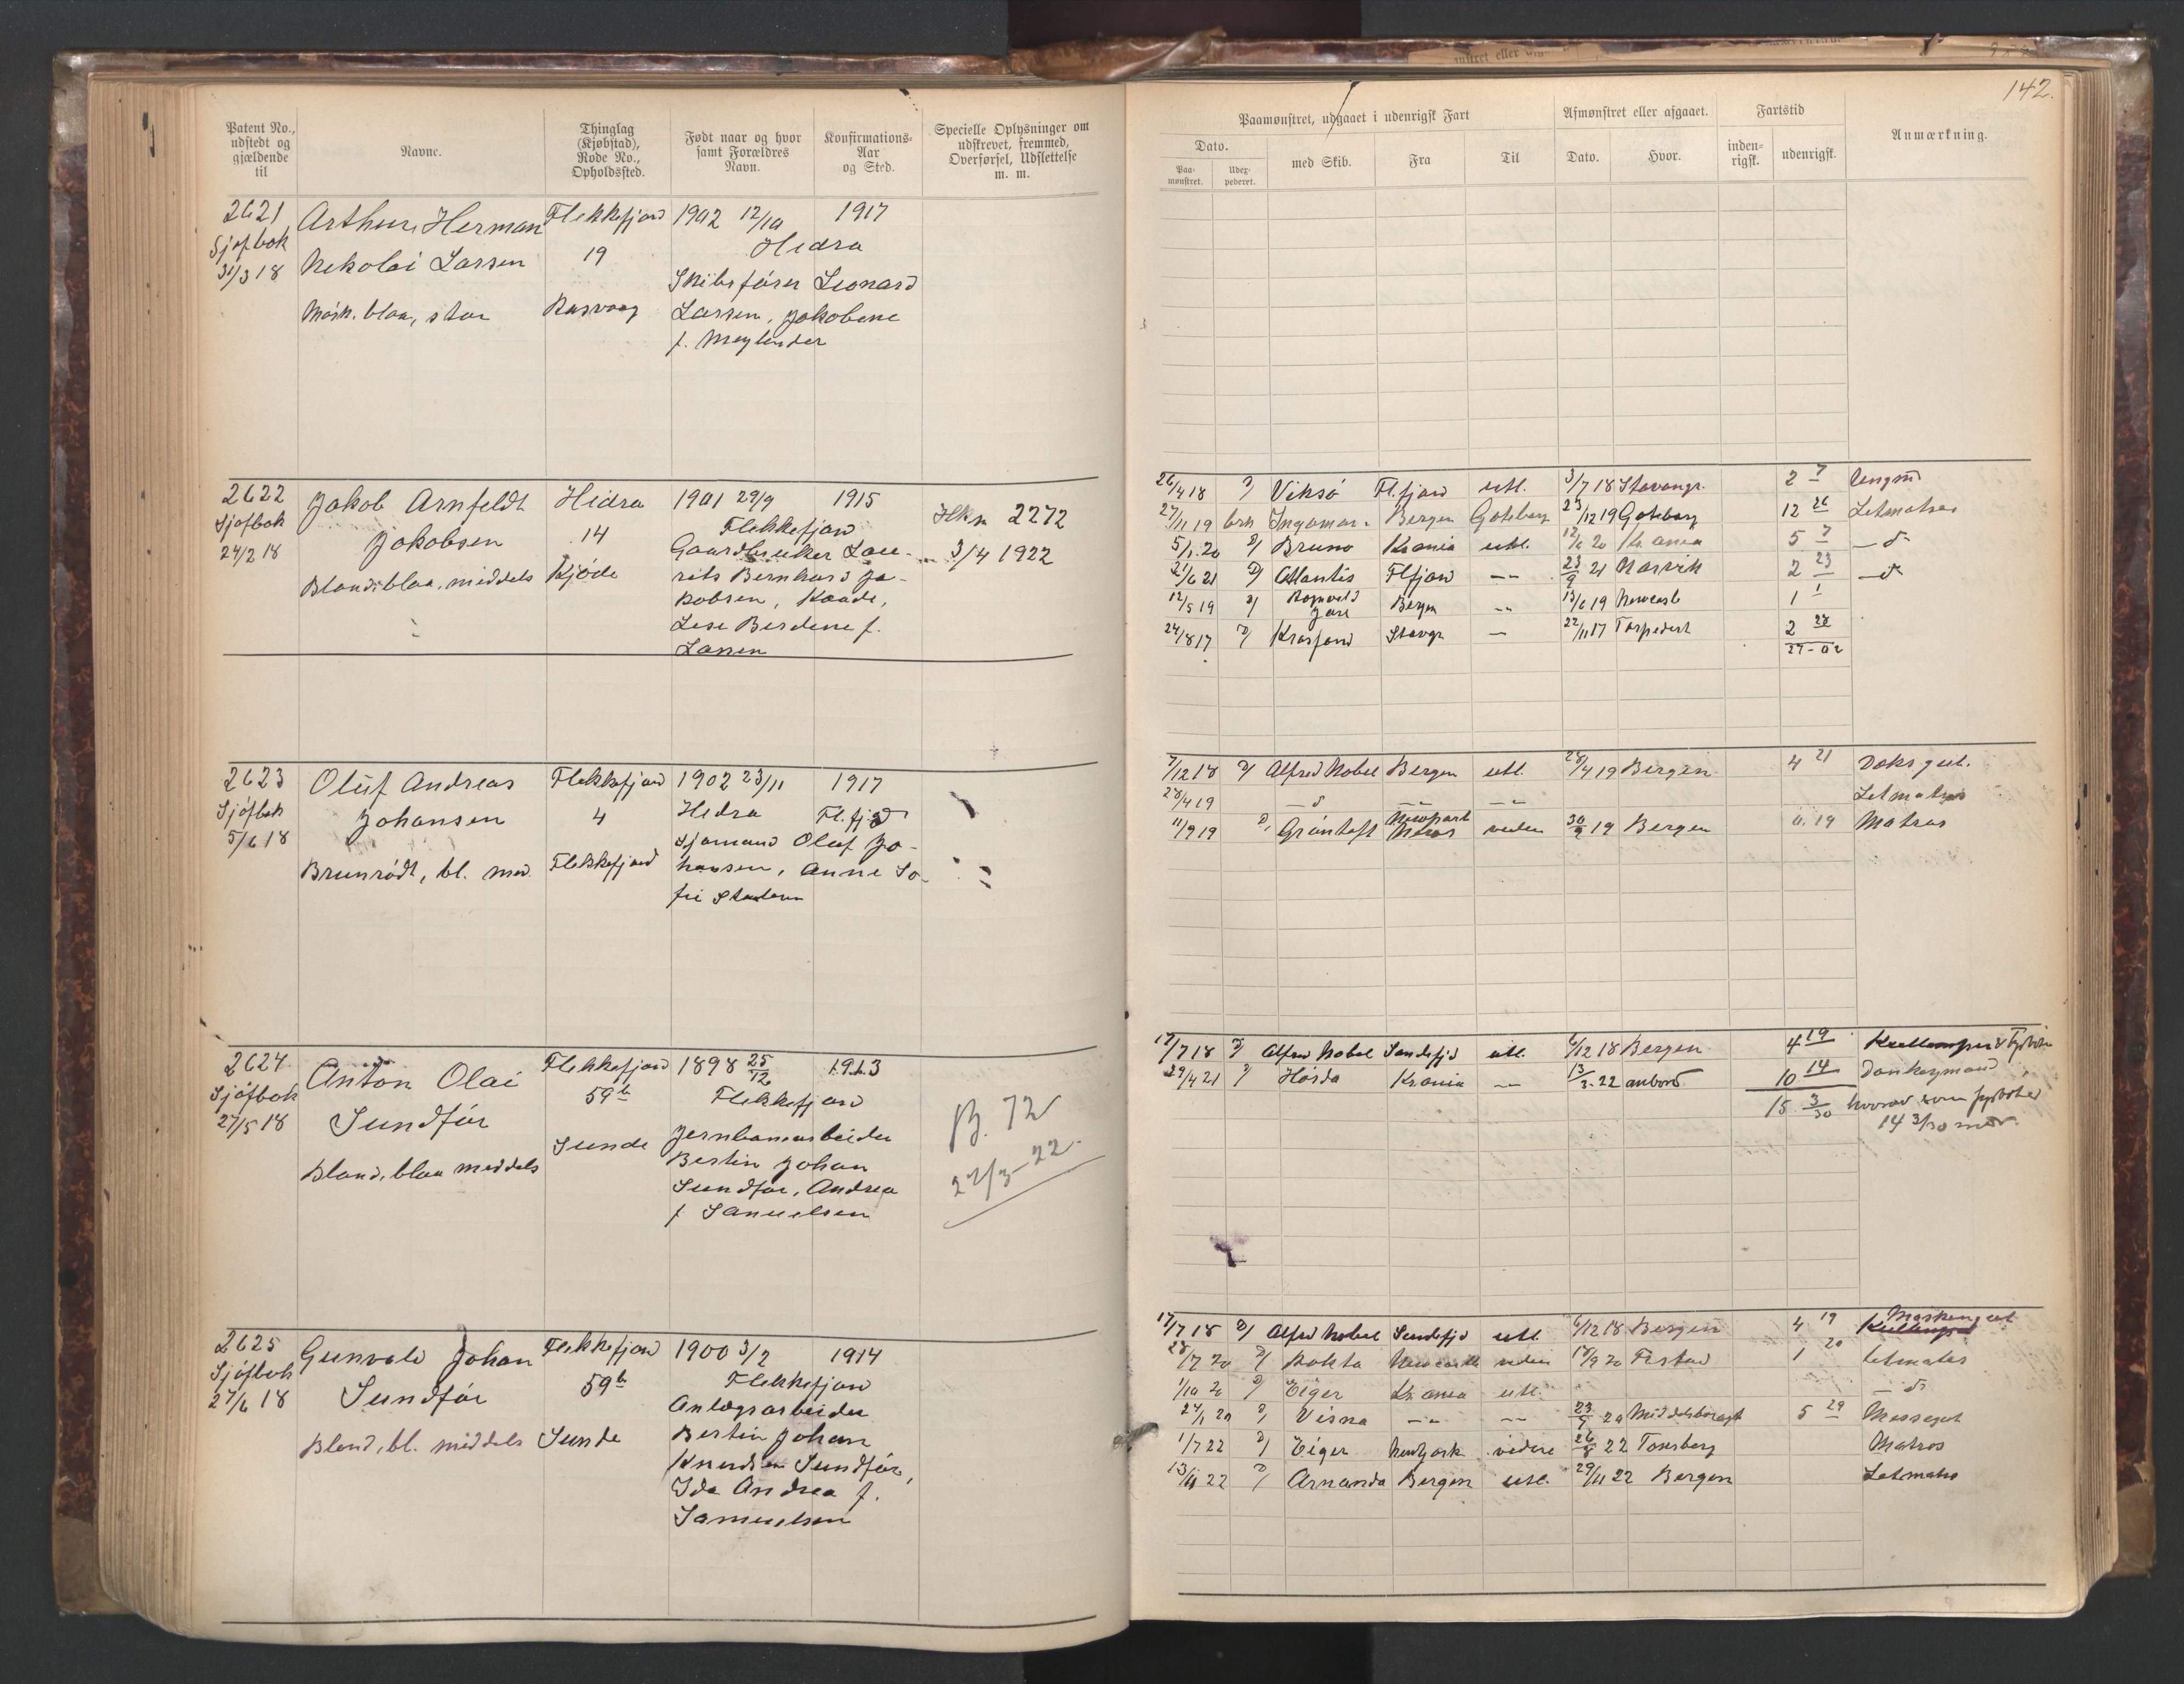 142.
Patent No., udstedt og gjældende til
Navne.
Thinglag (Kjøbstad), Rode No., Opholdssted.
Født naar og hvor samt Forældres Navn.
Konfirmations-Aar og Sted.
Specielle Oplysninger om udskrevet, fremmed, Overførsel, Udslettelse m. m.
Paamønstret, udgaaet i udenrigsk Fart
Afmønstret eller afgaaet.
Fartstid
Anmærkning.
Dato.
med Skib.
Fra
Til
Dato.
Hvor.
inden-rigsk.
udenrigsk.
Paa-mønstret.
Udex-pederet.
2621 Arthur Herman Flekkefjord 1902 12/10 1917
Sjøfbok Nikolai Larsen 19 Hidra
31/3 18
Skibsfører Leonard
Mørk. blaa, stor Rasvaag Larsen, Jakobene
f. Meylænder
2622 Jakob Arnfeldt Hidra 1901 29/9 1915
Sjøfbok Jakobsen 14 Flekkefjord
24/2 18 Gaardbruker Lau-
Blond, blaa, middels Kjøde rits Bernhard Ja-
kobsen,
Lise Berdine f.
Larsen
2272
3/4 1922
26/4 18 D/ Viksø Fl.fjord utl. 3/7 18 Stavangr. 2 7 Ungmd
27/11 19 brk Ingamar Bergen Gøteborg 23/12 19 Gøteborg 12 26 Letmatros
5/1 20 D/ Bruno Krania utl. 12/6 20 Krania 5 7 — d
21/6 21 D/ Atlantis Flfjord — 23/9 21 Narvik 2 23 — d
12/5 19 D/ Ragnvald Jarl Bergen — 13/6 19 Newcastle 1 1
24/8 17 D/ Krosfond Stavgr — 22/11 17 Torpedert 2 28
27-02
2623 Oluf Andreas Flekkefjord 1902 23/11 1917
Sjøfbok Johansen 4 Hidra Fl.fjord
5/6 18 Sjømand Oluf Jo-
Brunrødt, bl. mid. Flekkefjord hansen, Anne So-
fie
7/12 18 D/ Alfred Nobel Bergen utl. 28/4 19 Bergen 4 21 Doksgut.
28/4 19 — d — — Letmatros
11/9 19 D/ Grøntoft Newport News viden 30/9 19 Bergen 0. 19 Matros
2624 Anton Olai Flekkefjord 1898 25/12 1913
Sjøfbok Sundfør 59b Flekkefjord
27/5 18 Sunde Jernbanearbeider
Blond, blaa middels Bertin Johan
Sundfør, Andrea
f. Samuelsen
B. 72
27/3-22
17/7 18 D/ Alfred Nobel Sandefjd utl. 6/12 18 Bergen 4 19 Kullemper & Fyrbøter
29/4 21 D/ Hørda Krania — 13/3 22 ombord 10 14 Donkeymand
15 3/30 hvorav som fyrbøter
14 3/30 mdr.
2625 Gunvald Johan Flekkefjord 1900 3/2 1914
Sjøfbok Sundfør 59b Flekkefjord
27/6 18 Anlægsarbeider
Blond, bl. middels Sunde Bertin Johan
Knudsen Sundfør,
Ida Andrea f.
Samuelsen
17/7 18 D/ Alfred Nobel Sandefjd utl. 6/12 18 Bergen 4 19 Maskingut
28/7 20 D/ Rokta Newcastle viden 18/9 20 1 20 Letmatros
1/10 20 D/ Eiger Kr.ania utl. — d
24/1 20 D/ Visna — — 23/7 20 Middelsboro 5 29 Messegut
1/7 22 D/ Eiger New York videre 26/8 22 Tønsberg Matros
13/11 22 D/ Arnanda Bergen utl. 29/11 22 Bergen Letmatros